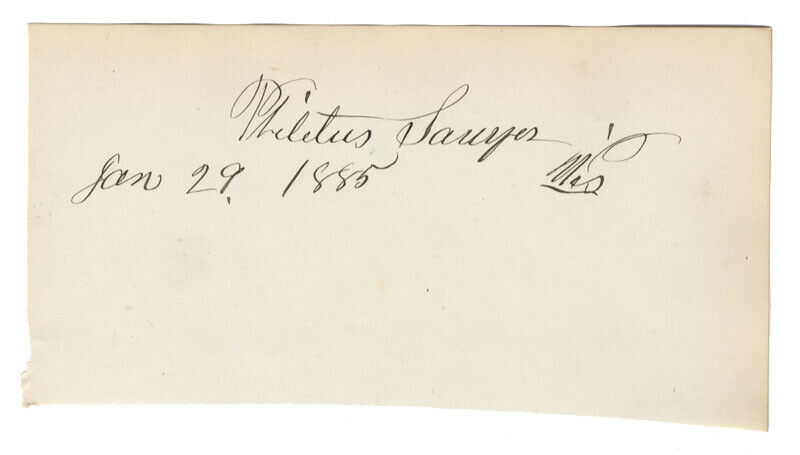 Philetus Sawyer
Jan 29. 1885 Wis